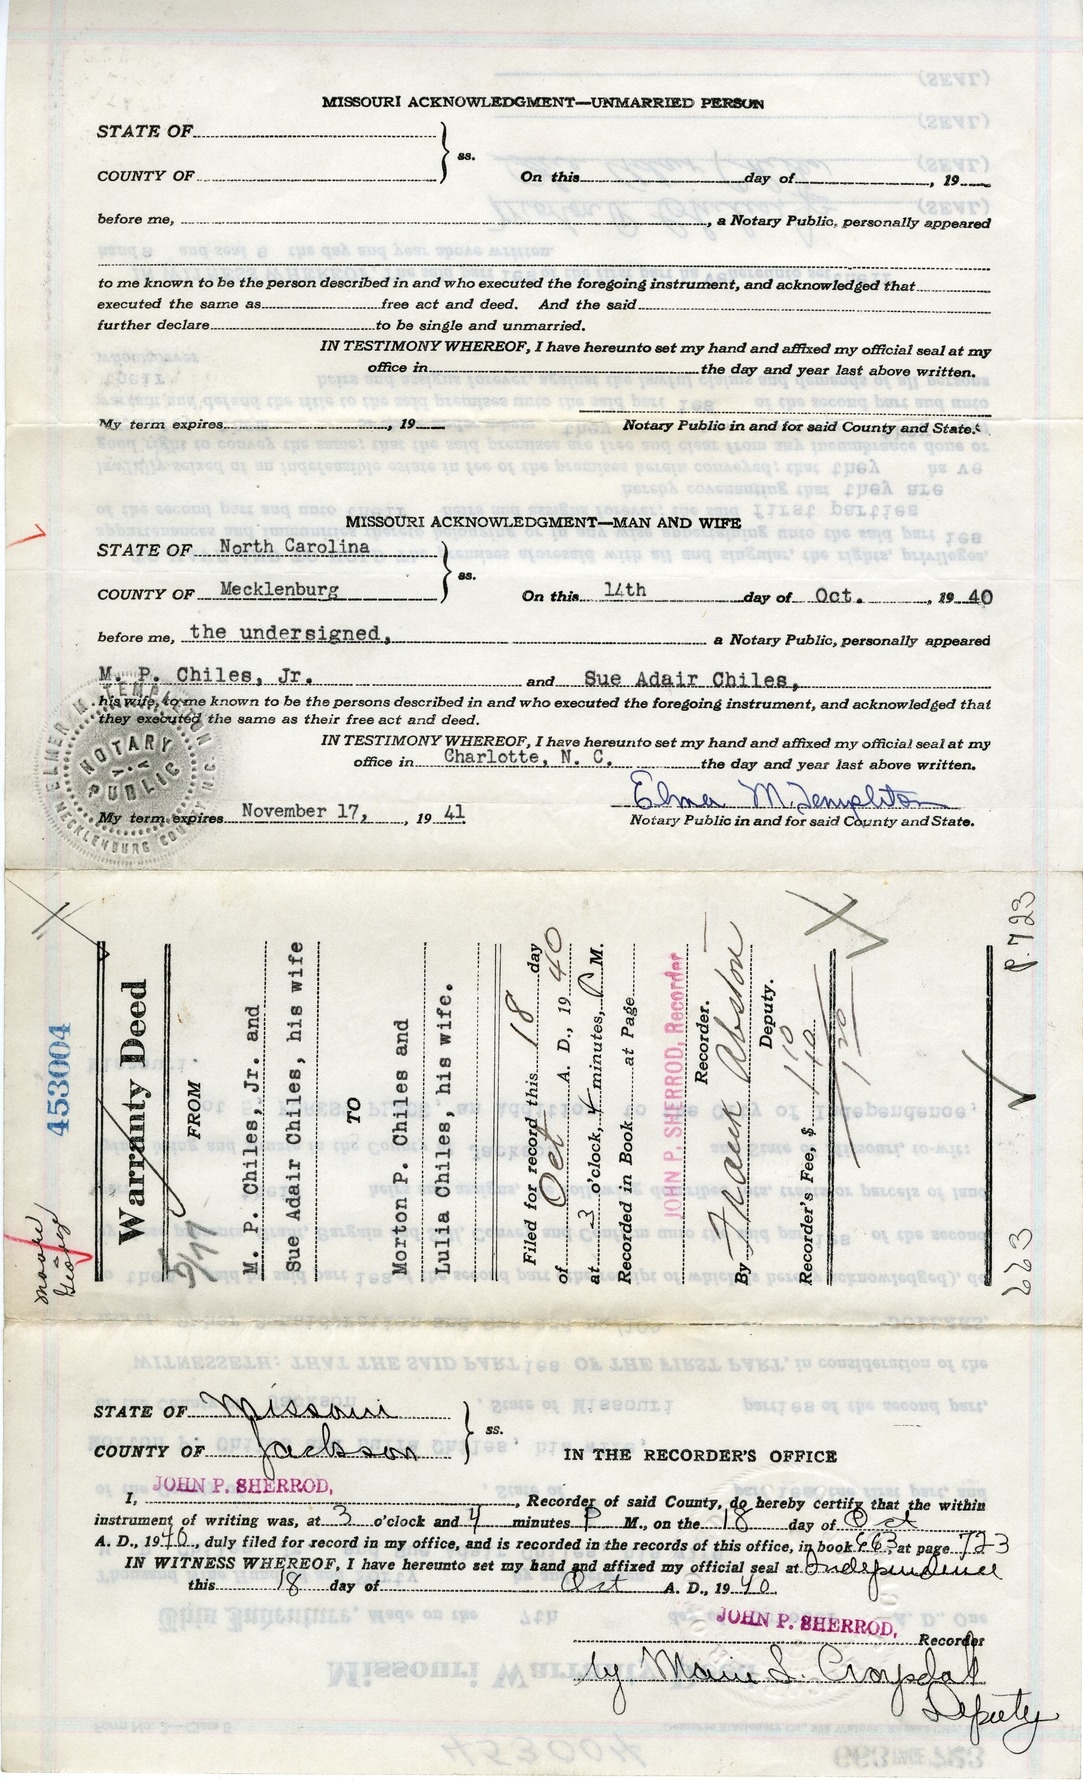 MISSOURI ACKNOWLEDGMENT—UNMARRIED PERSON
STATE OF
COUNTY OF
ss.
On this day of , 19
before me, , a Notary Public, personally appeared
to me known to be the person described in and who executed the foregoing instrument, and acknowledged that
executed the same as free act and deed. And the said
further declare to be single and unmarried.
IN TESTIMONY WHEREOF, I have hereunto set my hand and affixed my official seal at my
office in the day and year last above written.
My term expires , 19
Notary Public in and for said County and State.
MISSOURI ACKNOWLEDGMENT—MAN AND WIFE
STATE OF North Carolina
ss.
COUNTY OF Mecklenburg On this 14th day of Oct. , 19 40
before me, the undersigned, a Notary Public, personally appeared
M. P. Chiles, Jr. and Sue Adair Chiles,
his wife, to me known to be the persons described in and who executed the foregoing instrument, and acknowledged that
they executed the same as their free act and deed.
IN TESTIMONY WHEREOF, I have hereunto set my hand and affixed my official seal at my
office in Charlotte, N. C. the day and year last above written.
Elmer M. Templeton
My term expires November 17, , 19 41
Notary Public in and for said County and State.
ELMER M. TEMPLETON
NOTARY PUBLIC
MECKLENBURG COUNTY N.C.
453004
Warranty Deed
FROM
5/77
M. P. Chiles, Jr. and
Sue Adair Chiles, his wife
TO
Morton P. Chiles and
Lulia Chiles, his wife.
Filed for record this 18 day
of Oct A. D., 19 40
at 3 o'clock, 4 minutes, P M.
Recorded in Book at Page
JOHN P. SHERROD, Recorder
Recorder.
By Frank Abston
Deputy.
Recorder's Fee, $
663 P. 723
STATE OF Missouri
ss.
COUNTY OF Jackson IN THE RECORDER'S OFFICE
I, JOHN P. SHERROD, , Recorder of said County, do hereby certify that the within
instrument of writing was, at 3 o'clock and 4 minutes P M., on the 18 day of Oct
A. D., 1940, duly filed for record in my office, and is recorded in the records of this office, in book 663 at page 723
IN WITNESS WHEREOF, I have hereunto set my hand and affixed my official seal at Independence
this 18 day of Oct A. D., 19 40
JOHN P. SHERROD,
Recorder
by L. Croysdale
Deputy